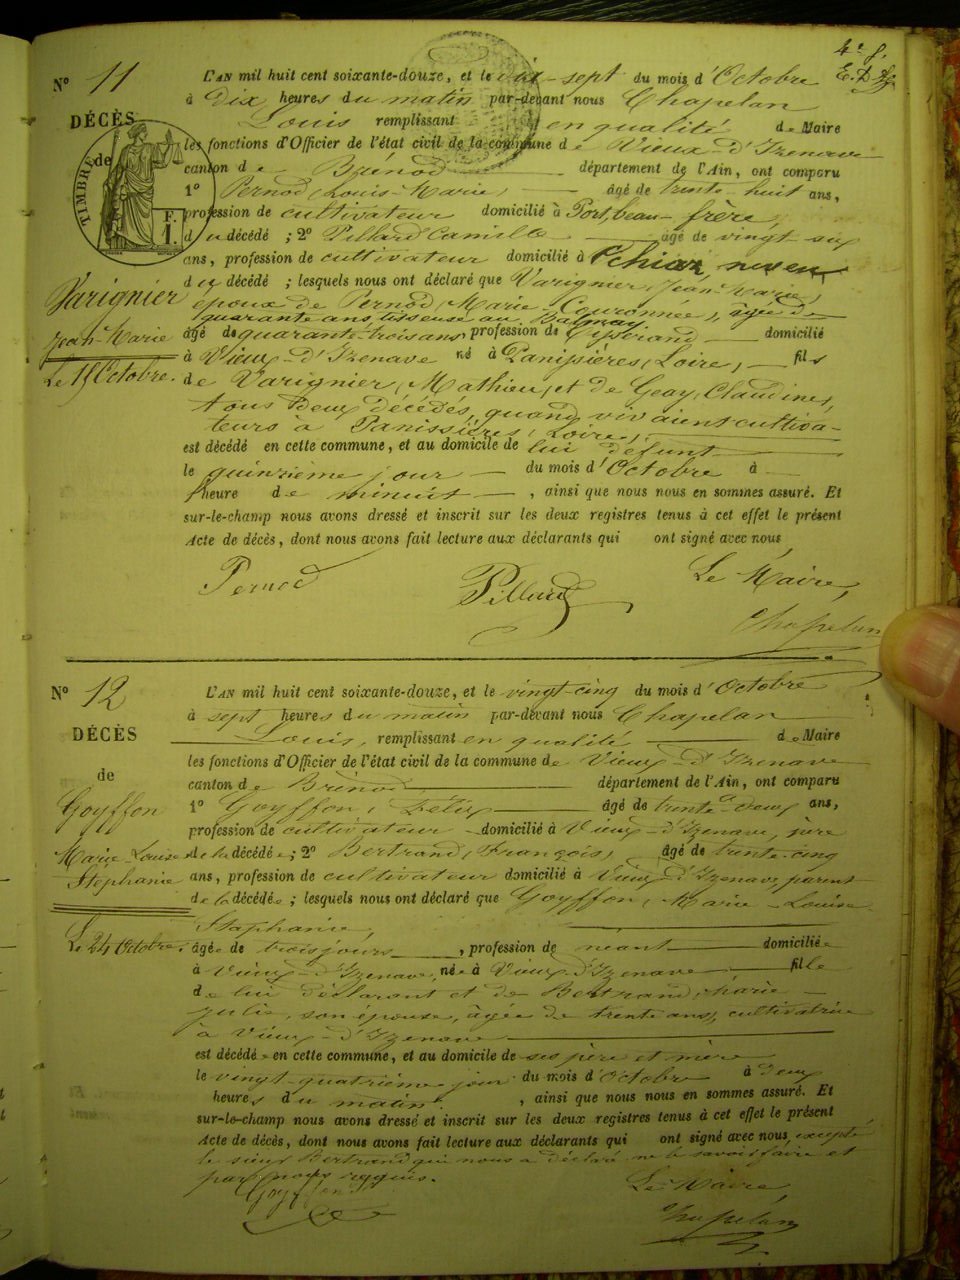 4e f.
N° 11
L'AN mil huit cent soixante-douze, et le dix-sept du mois d'Octobre
à Dix heures du matin par-devant nous Chapelan
DÉCÈS
Louis remplissant en qualité de Maire
les fonctions d'Officier de l'état civil de la commune de Vieux-d'Izenave
de
TIMBRE
canton de Brénod département de l'Ain, ont comparu
1° Pernod, Louis-Marie, âgé de trente-huit ans,
F.
1.
profession de cultivateur domicilié à Port, beau-frère
du décédé ; 2° Pillard Camille âgé de vingt six
ans, profession de cultivateur domicilié à Echiax, neveu
du décédé ; lesquels nous ont déclaré que Varignier, Jean-Marie,
Varignier
époux de Pernod, Marie Couronnée, âgée de
quarante ans, tisseuse au Balmay
Jean-Marie
âgé de quarante-trois ans, profession de Tisserand domicilié
à Vieux-d'Izenave né à Panissières, Loire, fils
Le 15 Octobre.
de Varignier, Mathieu, et de Geay, Claudine,
tous deux décédés, quand vivaient cultiva-
teurs à Panissières, Loire,
est décédé en cette commune, et au domicile de lui défunt
le quinzième jour du mois d'Octobre à
l'heure de minuit, ainsi que nous nous en sommes assuré. Et
sur-le-champ nous avons dressé et inscrit sur les deux registres tenus à cet effet le présent
Acte de décès, dont nous avons fait lecture aux déclarants qui ont signé avec nous
Pernod Pillard Le Maire,
Chapelan
N° 12
L'AN mil huit cent soixante-douze, et le vingt-cinq du mois d'Octobre
à sept heures du matin par-devant nous Chapelan
DÉCÈS
Louis, remplissant en qualité de Maire
les fonctions d'Officier de l'état civil de la commune de Vieux-d'Izenave
de
canton de Brénod département de l'Ain, ont comparu
Goyffon
1° Goyffon, Félix âgé de trente-deux ans,
profession de cultivateur domicilié à Vieux-d'Izenave, père
Marie-Louise
de la décédée ; 2° Bertrand, François, âgé de trente-cinq
Stéphanie
ans, profession de cultivateur domicilié à Vieux-d'Izenave parent
de la décédée ; lesquels nous ont déclaré que Goyffon, Marie-Louise
Stéphanie,
Le 24 Octobre.
âgée de trois jours, profession de néant domiciliée
à Vieux-d'Izenave, née à Vieux-d'Izenave fille
de lui déclarant et de Bertrand, Marie-
Julie, son épouse, âgée de trente ans, cultivatrice
à Vieux-d'Izenave
est décédée en cette commune, et au domicile de ses père et mère
le vingt-quatrième jour du mois d'Octobre à deux
heures du matin, ainsi que nous nous en sommes assuré. Et
sur-le-champ nous avons dressé et inscrit sur les deux registres tenus à cet effet le présent
Acte de décès, dont nous avons fait lecture aux déclarants qui ont signé avec nous, excepté
le sieur Bertrand qui nous a déclaré ne le savoir faire et
par nous requis.
Goyffon Le Maire,
Chapelan